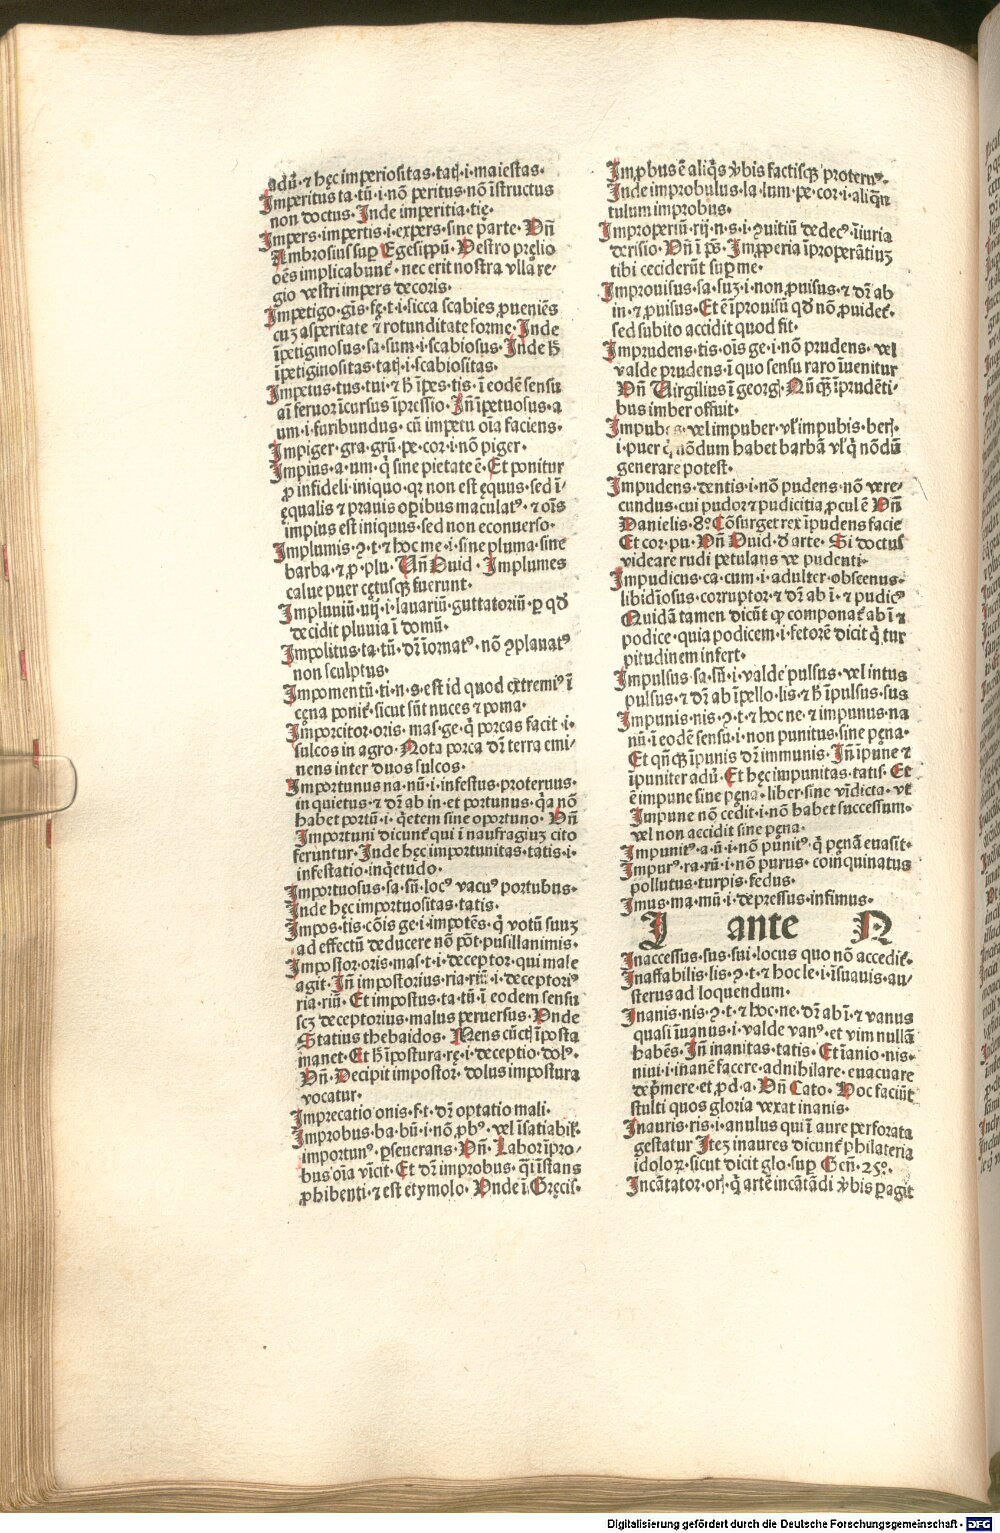 adũ·⁊ hęc imperiositas·tatꝭ·i·maiestas·
Imperitus ta·tũ·i·nõ peritus·nõ ĩstructus
non doctus·Inde imperitia·tię·
Impers·impertis·i·expers·sine ꝑarte·Vñ
Ambrosius suꝑ Egesippũ·Vestro pręlio
oẽs implicabunt᷑·nec erit nostra vlla re⸗
gio vestri impers decoris·
Impetigo·gis·fę·t·i·sicca scabies ꝓueniẽs
cuꝫ asperitate ⁊ rotunditate formę·Inde
ĩpetiginosus·sa·sum·i·scabiosus·Inde h̃
ĩpetiginositas·tatꝭ·i·scabiositas·
Impetus·tus·tui·⁊ h̃ ĩpes·tis·ĩ eodẽ sensu
aĩ feruor ĩcursus ĩpressio·Jñ ĩpetuosus·a
um·i·furibundus·cũ impetu oĩa faciens·
Impiger·gra·grũ·pe·cor·i·nõ piger·
Impius·a·um·q̃ sine pietate ẽ·Et ponitur
ꝓ infideli iniquo·qꝛ non est ęquus·sed ĩ⸗
ęqualis ⁊ prauis oꝑibus maculatꝰ·⁊ oĩs
impius est iniquus·sed non econuerso·
Implumis·ꝯ·t·⁊ hoc me·i·sine pluma·sine
barba·⁊ ꝓ·plu·Vñ Ouid·Implumes
calue puer cętusqꝫ fuerunt·
Impluuiũ·uij·i·lauariũ·guttatoriũ·ꝑ qđ
decidit pluuia ĩ domũ·
Impolitus·ta·tũ·dr̃ ĩornatꝰ·nõ ꝯplanatꝰ
non sculptus·
Impomentũ·ti·n·s·est id quod extremiꝰ ĩ
cęna ponit᷑·sicut sũt nuces ⁊ poma·
Imporcitor·oris·mas·ge·q̃ porcas facit·i·
sulcos in agro·Nota porca dr̃ terra emi⸗
nens inter duos sulcos·
Importunus na·nũ·i·infestus·proteruus·
inquietus·⁊ dr̃ ab in·et portunus·q̃a nõ
habet portũ·i·q̃etem sine oportuno·Vñ
Importuni dicunt᷑ qui ĩ naufragiuꝫ cito
feruntur·Inde hęc importunitas·tatis·i·
infestatio·inq̃etudo·
Importuosus·sa·sũ·locꝰ vacuꝰ portubus·
Inde hęc importuositas·tatis·
Impos·tis·cõis ge·i·impotẽs·q̃ votũ suuꝫ
ad effectũ deducere nõ põt·pusillanimis·
Impostor·oris·mas·t·i·deceptor·qui male
agit·Jñ impostorius·ria·riũ·i·deceptoriꝰ
ria·riũ·Et impostus·ta·tũ·ĩ eodem sensu
scꝫ deceptorius·malus peruersus·Vnde
Statius thebaidos·Mens cũctꝭ ĩposta
manet·Et h̃ ĩpostura·rę·i·deceptio·dolꝰ·
Vñ·Decipit impostor·dolus impostura
vocatur·
Imprecatio onis·f·t·dr̃ optatio mali·
Improbus·ba·bũ·i·nõ ꝓbꝰ·vel ĩsatiabil̃·
importunꝰ·ꝑseuerans·Vñ·Labor ĩpro⸗
bus oĩa vĩcit·Et dr̃ improbus·q̃i ĩstans
ꝓhibenti·⁊ est etymolo·Vnde ĩ Gręcis·
Imꝓbus ẽ aliq̃s v̾bis factisqꝫ proteruꝰ·
Inde improbulus·la·lum·pe·cor·i·aliqñ
tulum improbus·
Improperiũ·rij·n·s·i·ꝯuitiũ dedecꝰ·ĩiuria
derisio·Vñ ĩ ps̃·Imꝓperia ĩproperãtiuꝫ
tibi ceciderũt suꝑ me·
Improuisus·sa·suꝫ·i·non ꝓuisus·⁊ dr̃ ab
in·⁊ ꝓuisus·Et ẽ ĩprouisũ qđ nõ ꝓuidet᷑·
sed subito accidit quod fit·
Imprudens·tis·oĩs ge·i·nõ prudens·vel
valde prudens·ĩ quo sensu raro ĩuenitur
Vñ Virgilius ĩ georgꝭ·Nũqꝫ ĩprudẽti⸗
bus imber offuit·
Impubes·vel impuber·vl̃ impubis·berꝭ·
i·puer q̃ nõdum habet barbã vl̃ q̃ nõdũ
generare potest·
Impudens·dentis·i·nõ pudens·nõ vere⸗
cundus·cui pudor ⁊ pudicitia ꝓcul ẽ Vñ
Danielis·8°·Cõsurget rex ĩpudens facie
Et cor·pu·Vñ Ouid·đ arte·Si doctus
videare rudi petulans ve pudenti·
Impudicus·ca·cum·i·adulter·obscenus·
libidĩosus·corruptor·⁊ dr̃ ab ĩ·⁊ pudicꝰ
Quidã tamen dicũt ꝙ componat᷑ ab ĩ ⁊
podice·quia podicem·i·fetorẽ dicit q̃ tur
pitudinem infert·
Impulsus·sa·sũ·i·valde pulsus·vel intus
pulsus·⁊ dr̃ ab ĩpello·lis·⁊ h̃ ĩpulsus·sus
Impunis·nis·ꝯ·t·⁊ hoc ne·⁊ impunus·na
nũ·ĩ eodẽ sensu·i·non punitus·sine pęna·
Et qñqꝫ ĩpunis dr̃ immunis·Jñ ĩpune ⁊
ĩpuniter adũ·Et hęc impunitas·tatis·Et
ẽ impune sine pęna·liber·sine vĩdicta·vt
Impune nõ cedit·i·nõ habet successum·
vel non accidit sine pęna·
Impunitꝰ·a·ũ·i·nõ punitꝰ·q̃ pęnã euasit·
Impurꝰ·ra·rũ·i·nõ purus·coinquinatus
pollutus·turpis·fedus·
Imus·ma·mũ·i·depressus·infimus·
I ante N
Inaccessus·sus·sui·locus quo nõ accedit᷑·
Inaffabilis·lis·ꝯ·t·⁊ hoc le·i·ĩsuauis·au⸗
sterus ad loquendum·
Inanis·nis·ꝯ·t·⁊ hoc·ne·dr̃ ab ĩ·⁊ vanus
quasi ĩuanus·i·valde vanꝰ·et vim nullã
habẽs·Jñ inanitas·tatis·Et ĩanio·nis·
niui·i·inanẽ facere·adnihilare·euacuare
dep̃mere·et ꝓd·a·Vñ Cato·Hoc faciũt
stulti quos gloria vexat inanis·
Inauris·ris·i·anulus qui ĩ aure perforata
gestatur Iteꝫ inaures dicunt᷑ philateria
idoloꝝ·sicut dicit glo·suꝑ Geñ·25°·
Incãtator·orꝭ·q̃ artẽ incãtãdi v̾bis ꝑagit